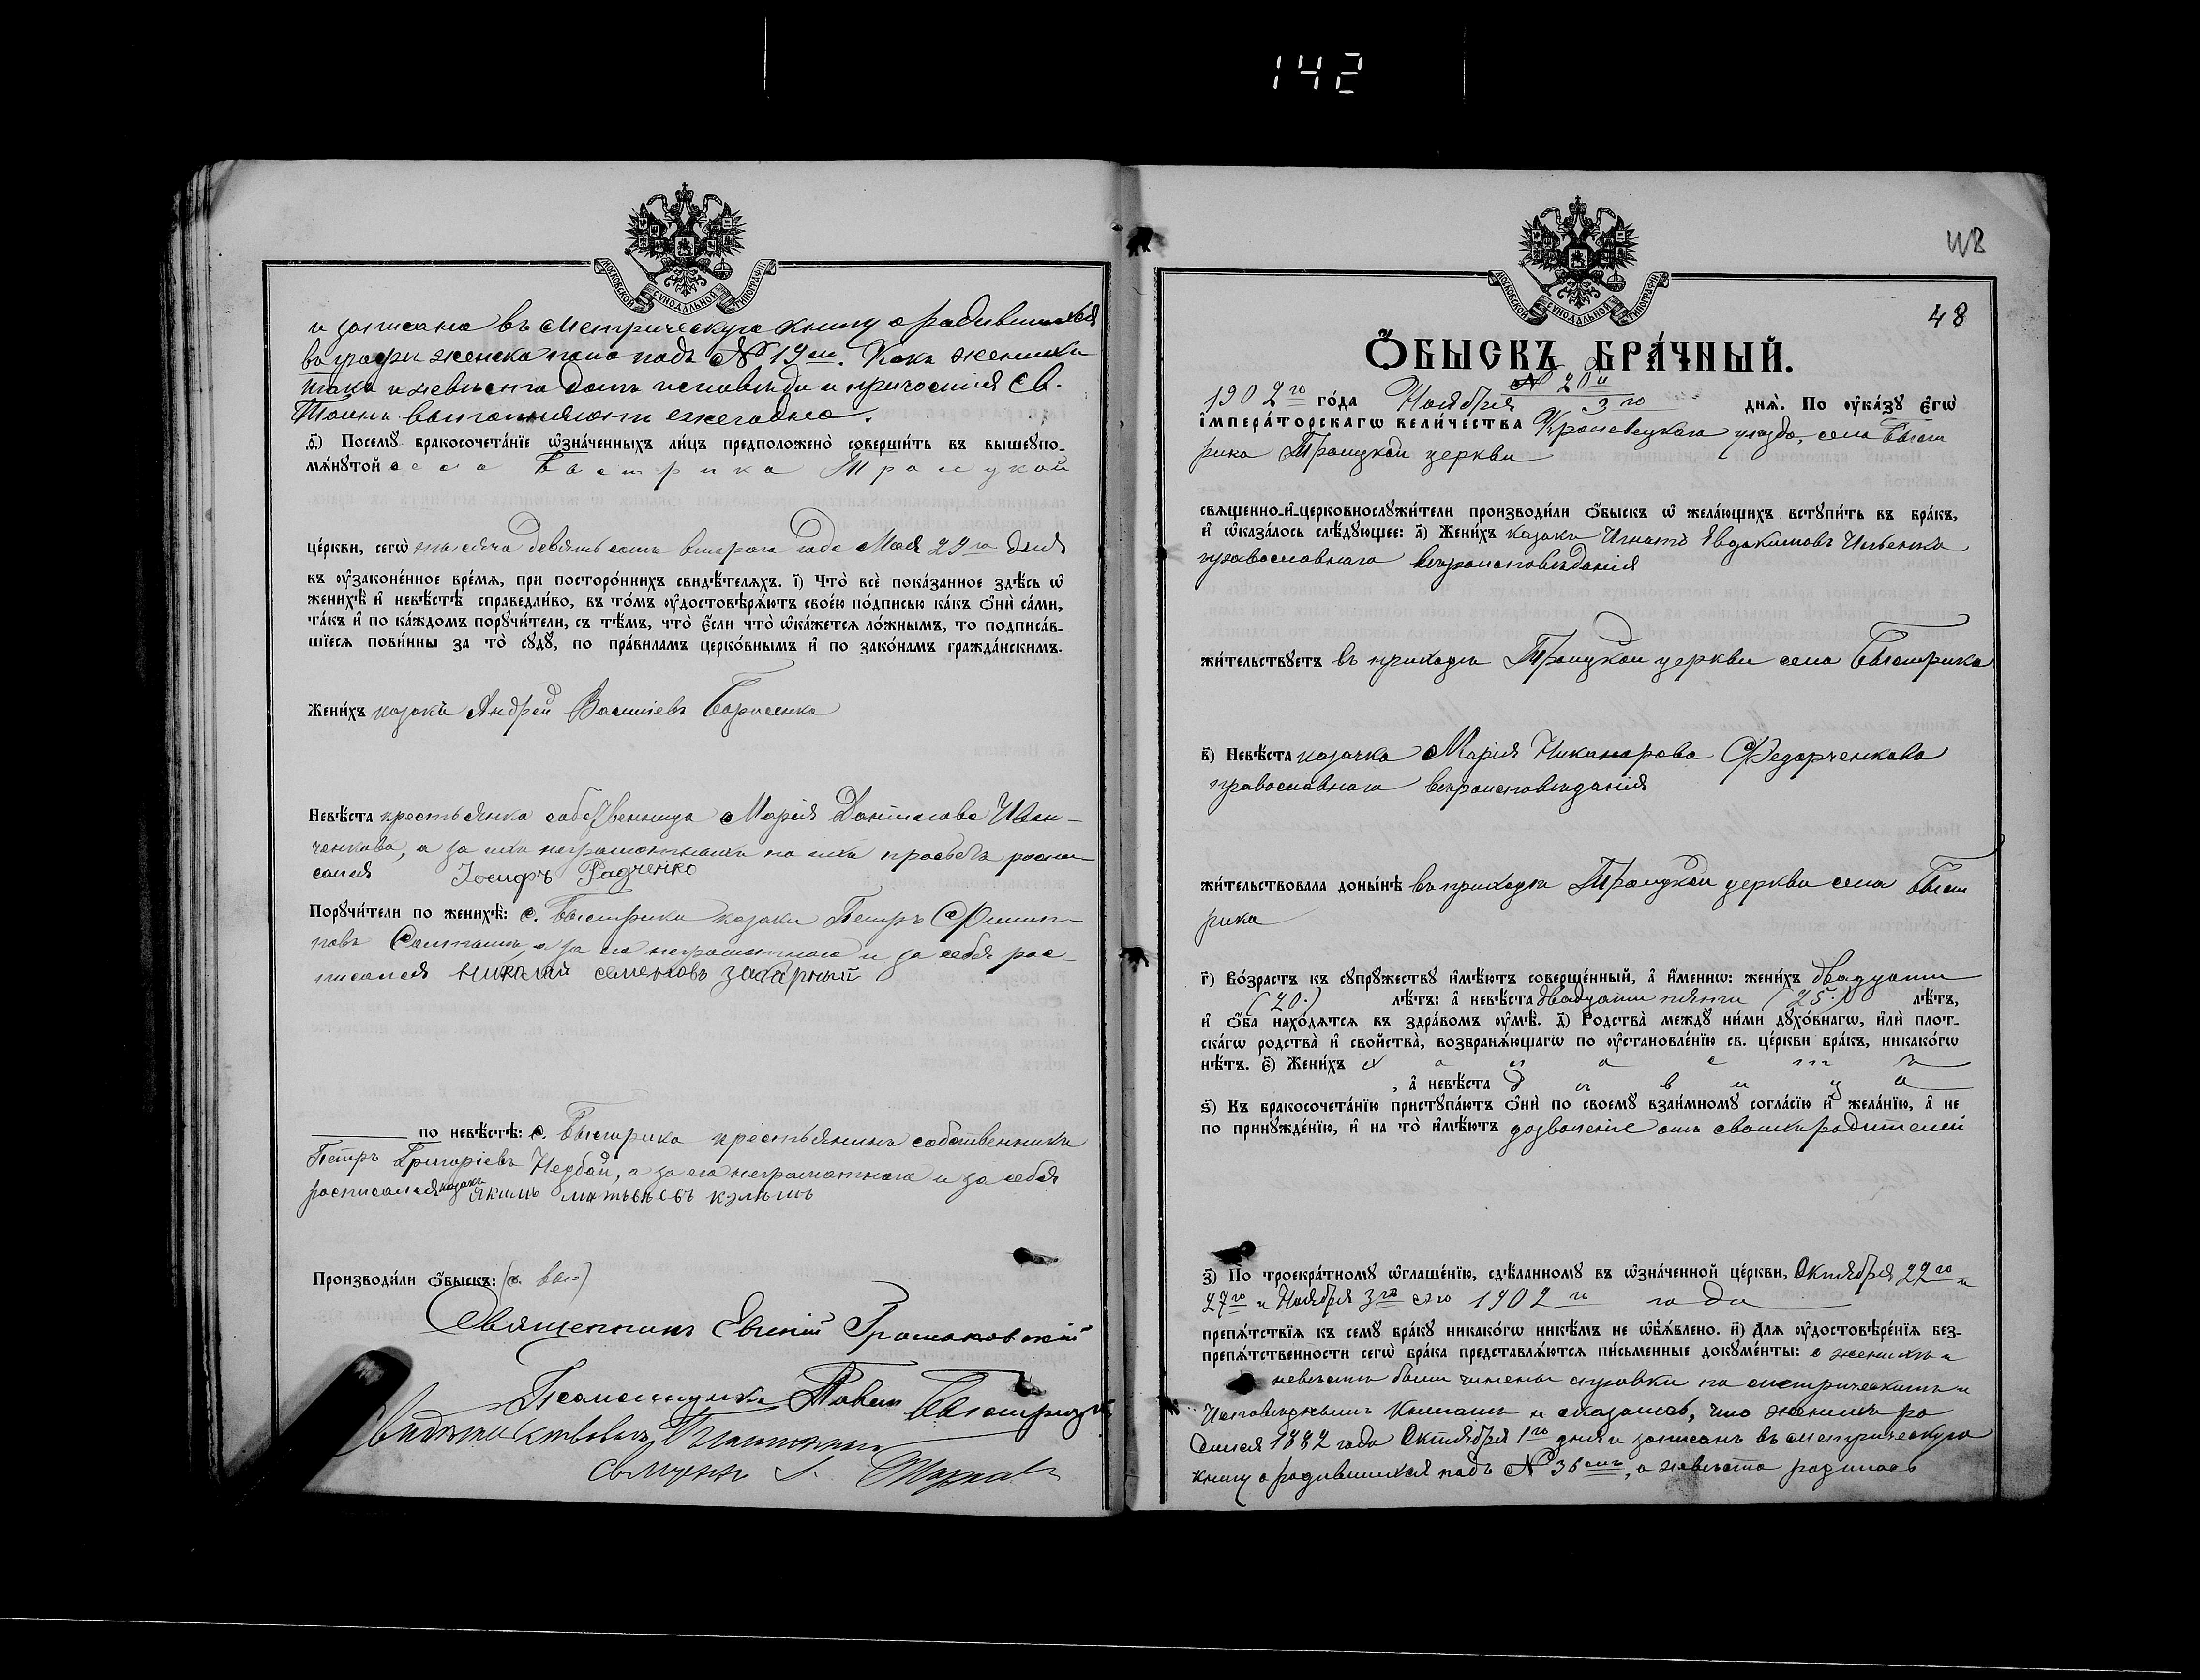 142
МОСКОВСКОЙ СѴНОДАЛЬНОЙ ТИПОГРАФІИ
и записана въ метрическую книгу о родившихся
въ графѣ женска пола подъ № 19 м. Какъ женихъ
такъ и невѣста долгъ исповѣди и причастія Св.
Таинъ выполняютъ ежегодно.
д҃) Посемꙋ бракосочета́нїе ѡ҆зна́ченныхъ ли́цъ предположено̀ соверши́ть въ вышеꙋпо-
мѧ́нꙋтой села Быстрика Троицкой
це́ркви, сегѡ̀ тысяча девятьсотъ втораго года Мая 29го дня
въ ᲂу҆законе́нное вре́мѧ, при посторо́ннихъ свидѣ́телѧхъ. і҃) Что̀ всѐ пока́занное здѣ́сь ѡ҆
женихѣ̀ и҆ невѣ́стѣ справедли́во, въ то́мъ ᲂу҆достовѣрѧ́ютъ свое́ю по́дписью ка́къ ѻ҆нѝ са́ми,
та́къ и҆ по ка́ждомъ порꙋчи́тели, съ тѣ́мъ, что̀ є҆́сли что̀ ѡ҆ка́жетсѧ ло́жнымъ, то подписа́в-
шїесѧ пови́нны за то̀ сꙋдꙋ̀, по пра́виламъ церко́внымъ и҆ по зако́намъ гражда́нскимъ.
Жени́хъ казакъ Андрей Василіевъ Борисенко
Невѣ́ста крестьянка собственница Марія Дантилова Иван-
ченкова, а за ихъ неграмотныхъ по ихъ просьбѣ роспи-
сался Іосифъ Радченко
Порꙋчи́тели по женихѣ̀: с. Быстрика казаки Петръ Филип-
повъ а за его неграмотнаго и за себя рос-
писался семеновъ
по невѣ́стѣ: с. Быстрика крестьянинъ собственникъ
Петръ Григоріевъ а за его неграмотнаго и за себя
росписался казакъ якимъ матвѣевъ
Производи́ли ѻ҆́быскъ:
Священникъ Евгеній Громаковскій
Псаломщикъ Павелъ
МОСКОВСКОЙ СѴНОДАЛЬНОЙ ТИПОГРАФІИ
48
48
Ѻ҆́БЫСКЪ БРА́ЧНЫЙ.
№ 20й
1902го го́да Ноября 3го днѧ̀. По ᲂу҆ка́зꙋ є҆гѡ̀
і҆мпера́торскагѡ вели́чества Кролевецкаго уѣзда, села Быст
рика Троицкой церкви
свѧще́нно-и҆-церковнослꙋжи́тели производи́ли ѻ҆́быскъ ѡ҆ жела́ющихъ встꙋпи́ть въ бра́къ,
и҆ ѡ҆каза́лось слѣ́дꙋющее: а҃) Жени́хъ казакъ Игнатъ Явдокимовъ Ильенко
православнаго вѣроисповѣданія
жи́тельствꙋетъ въ приходѣ Троицкой церкви села Быстрика
в҃) Невѣ́ста казачка Марія Никанорова Федорченкова
православнаго вѣроисповѣданія
жи́тельствовала доны́нѣ въ приходѣ Троицкой церкви села Быст
рика
г҃) Во́зрастъ къ сꙋпрꙋ́жествꙋ и҆мѣ́ютъ соверше́нный, а҆ и҆́меннѡ: жени́хъ двадцати
(20.) лѣ́тъ: а҆ невѣ́ста двадцати пяти (25.) лѣ́тъ,
и҆ ѻ҆́ба нахо́дѧтсѧ въ здра́вомъ ᲂу҆мѣ̀. д҃) Родства̀ междꙋ̀ ни́ми дꙋхо́внагѡ, и҆лѝ плот-
ска́гѡ родства̀ и҆ сво́йства, возбранѧ́ющагѡ по ᲂу҆становле́нїю св. це́ркви бра́къ, никако́гѡ
нѣ́тъ. є҃) Жени́хъ холостъ
, а҆ невѣ́ста дѣвица
ѕ҃) Къ бракосочета́нїю пристꙋпа́ютъ ѻ҆нѝ по своемꙋ̀ взаи́мномꙋ согла́сїю и҆ жела́нїю, а҆ не
по принꙋжде́нїю, и҆ на то̀ и҆мѣ́ютъ дозволеніе отъ своихъ родителей
з҃) По троекра́тномꙋ ѡ҆глаше́нїю, сдѣ́ланномꙋ въ ѡ҆зна́ченной це́ркви, Октября 22го и
27го и Ноября 3го сего 1902го года
препѧ́тствїѧ къ семꙋ̀ бра́кꙋ никако́гѡ никѣ́мъ не ѡ҆б̾ѧ́влено. и҃) Длѧ ᲂу҆достовѣре́нїѧ без-
препѧ́тственности сегѡ̀ бра́ка представлѧ́ютсѧ пи́сьменные докꙋме́нты: о женихѣ и
невѣстѣ были чинены справки по метрическимъ и
Исповѣднымъ книгамъ и оказалось, что женихъ ро
дился 1882 года Октября 1го дня и записанъ въ метрическую
книгу о родившихся подъ № 36мъ, а невѣста родилась